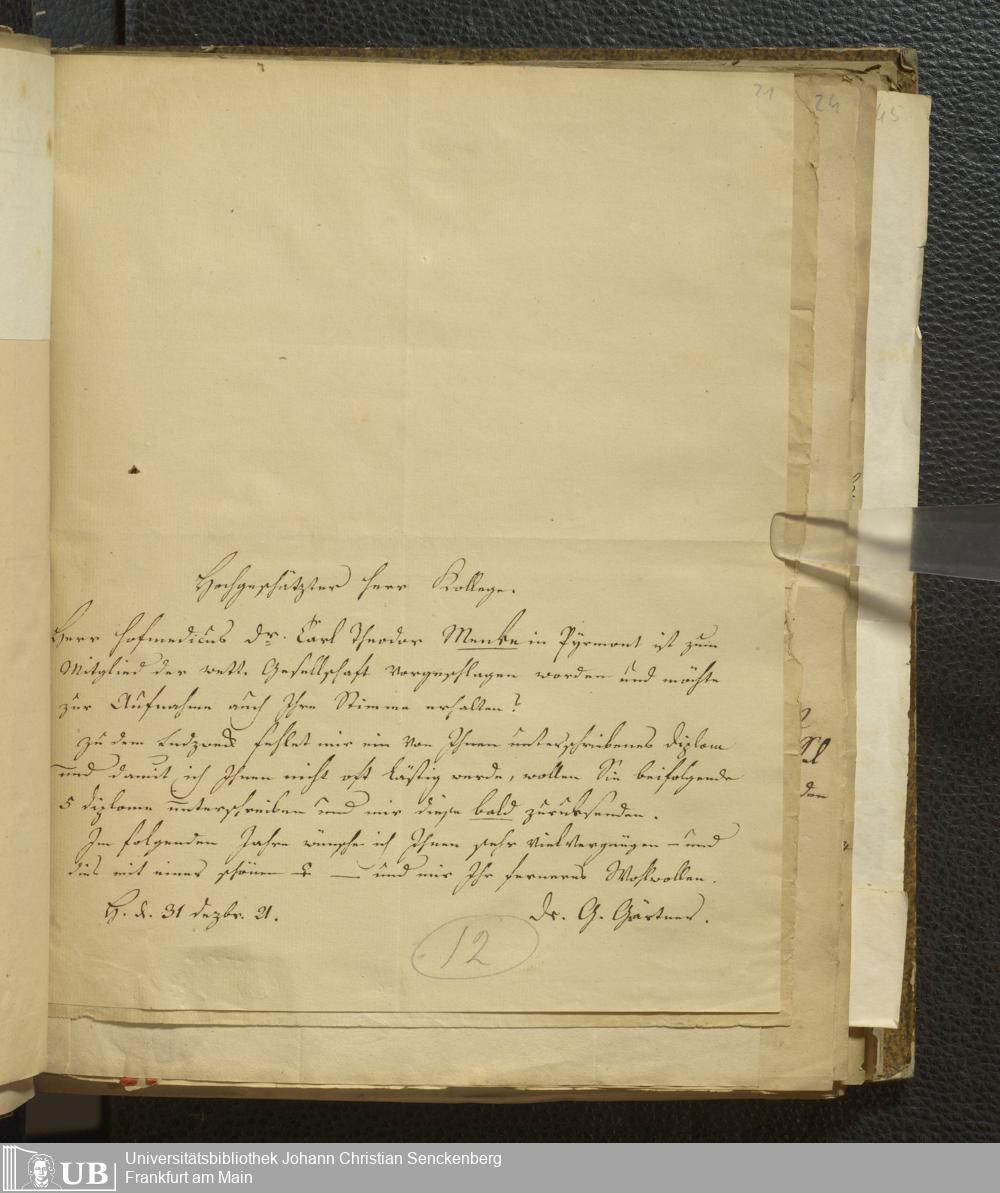 21
24
45
Hochgeschätzter Herr Kollege.
Herr Hofmedicus Dr. Carl Theodor Menke in Pyrmont ist zum
Mitglied der wett. Gesellschaft vorgeschlagen worden und möchte
zur Aufnahme auch Ihre Stimme erhalten?
Zu dem Endzweck fehlet mir ein von Ihnen unterschriebenes Diplom
und damit ich Ihnen nicht oft lästig werde, wollen Sie beifolgende
5 Diplome unterschreiben und mir diese bald zurücksenden.
Im folgenden Jahre wünsche ich Ihnen sehr viel Vergnügen – und
dies mit einer schönen – und mir Ihr ferneres Wohlwollen.
H. d. 31 Dezbr. 21.
Dr. G. Gärtner.
12
den
UB
Universitätsbibliothek Johann Christian Senckenberg
Frankfurt am Main